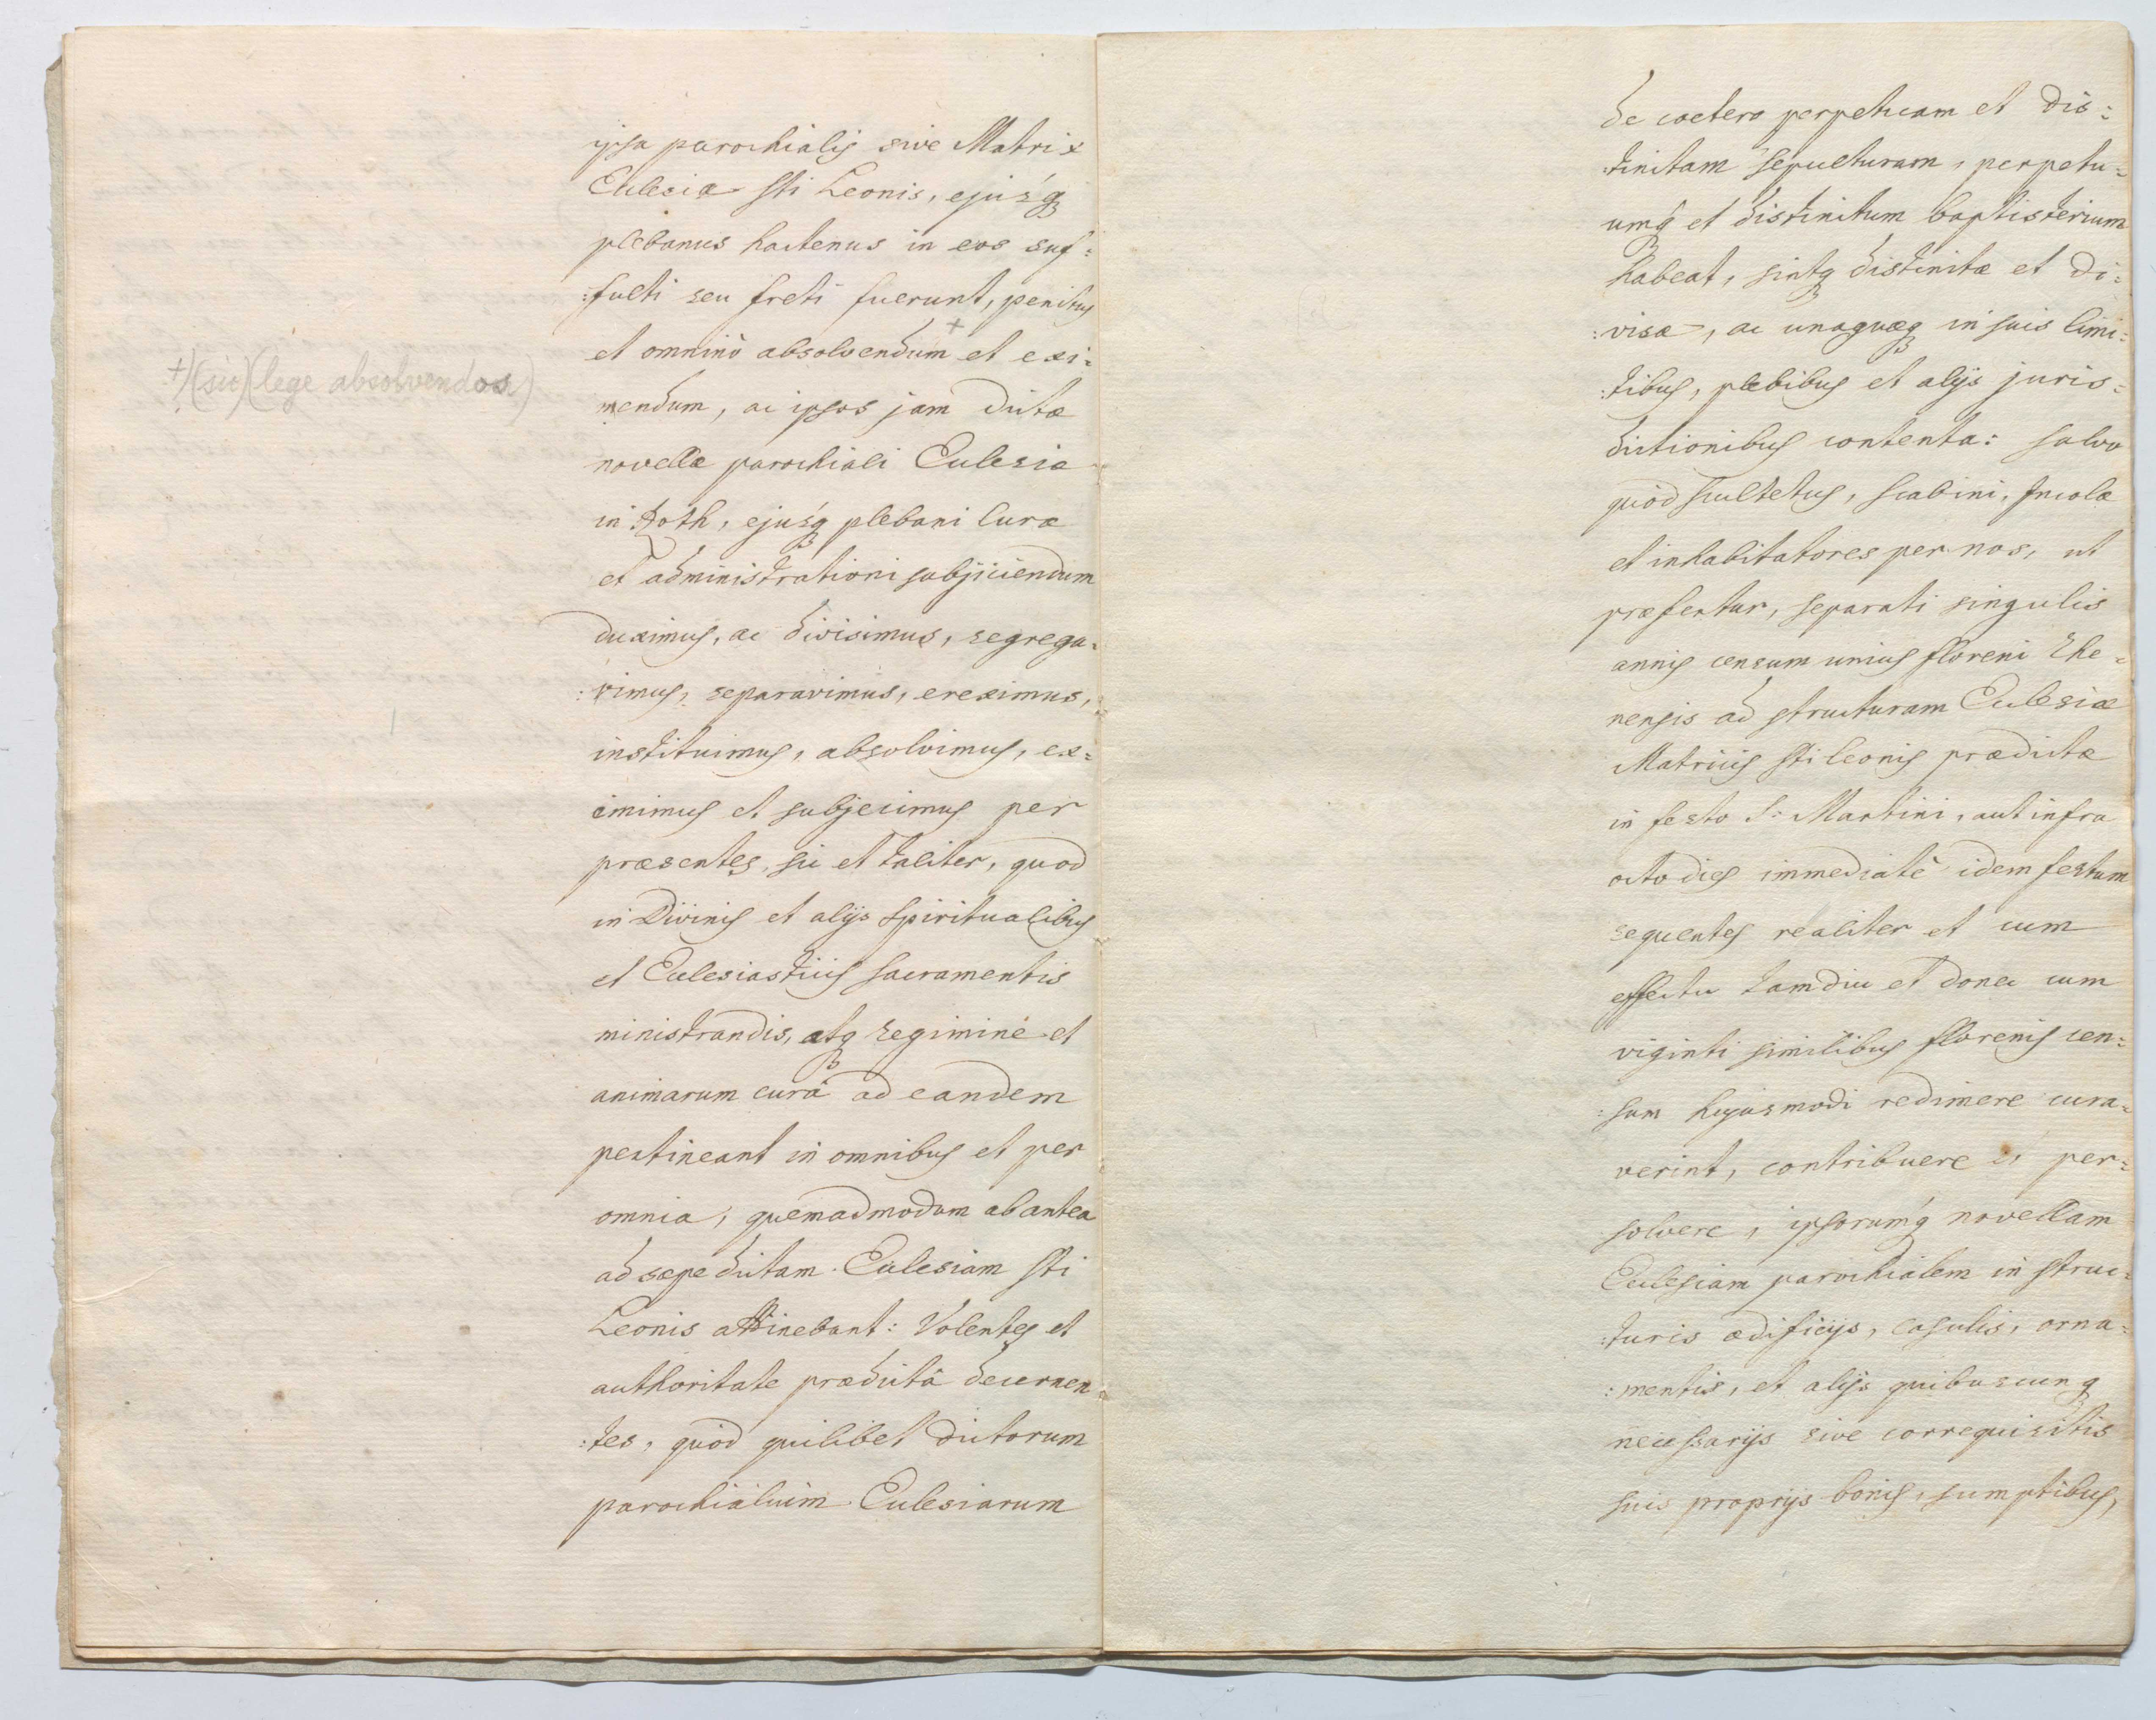 ipsa parochialis sive Matrix
Ecclesia Sti Leonis, ejúsq₃
plebanus hactenus in eos suf:
:fulti seu freti fuerunt, penitus
et omninò absolvendum + et exi:
+) (sic) (lege absolvendos)
mendum, ac ipsos jam dictæ
novellæ parochiali Ecclesiæ
in Roth, ejúsq₃ plebani Curæ
et administrationi subjiciendum
duximus, ac divisimus, segrega:
:vimus, separavimus, ereximus,
instituimus, absolvimus, ex:
emimus et subjecimus per
præsentes, sic et taliter, quod
in Divinis et alijs Spiritualibus
et Ecclesiasticis Sacramentis
ministrandis, atq₃ regimine et
animarum curâ ad eandem
pertineant in omnibus et per
omnia, quemadmodum ab antea
ad sæpe dictam Ecclesiam Sti
Leonis attinebant: Volentes et
authoritate prædictâ decernen:
:tes, quòd quilibet dictarum
parochialium Ecclesiarum
de coetero perpetuam et dis:
:tinctam sepulturam, perpetu:
umq₃ et distinctum baptisterium
habeat, sintq₃ distinctæ et di:
:visæ, ac unaquæq₃ in suis limi:
:tibus, plebibus et alijs juris:
dictionibus contenta: salvo
quòd scultetus, scabini, Incolæ
et inhabitatores per nos, ut
præfertur, separati singulis
annis censum unius floreni Rhe:
nensis ad structuram Ecclesiæ
Matricis Sti Leonis prædictæ
in festo S: Martini, aut infra
octo dies immediatè idem festum
sequentes realiter et cum
effectu tamdiu et donec cum
viginti similibus florenis cen:
:sum hujusmodi redimere cura:
verint, contribuere et per:
solvere, ipsorumq́ novellam
Ecclesiam parochialem in struc:
:turis ædificijs, casulis, orna:
:mentis, et alijs quibuscunq₃
necessarijs sive correquisitis
suis proprijs bonis, sumptibus,